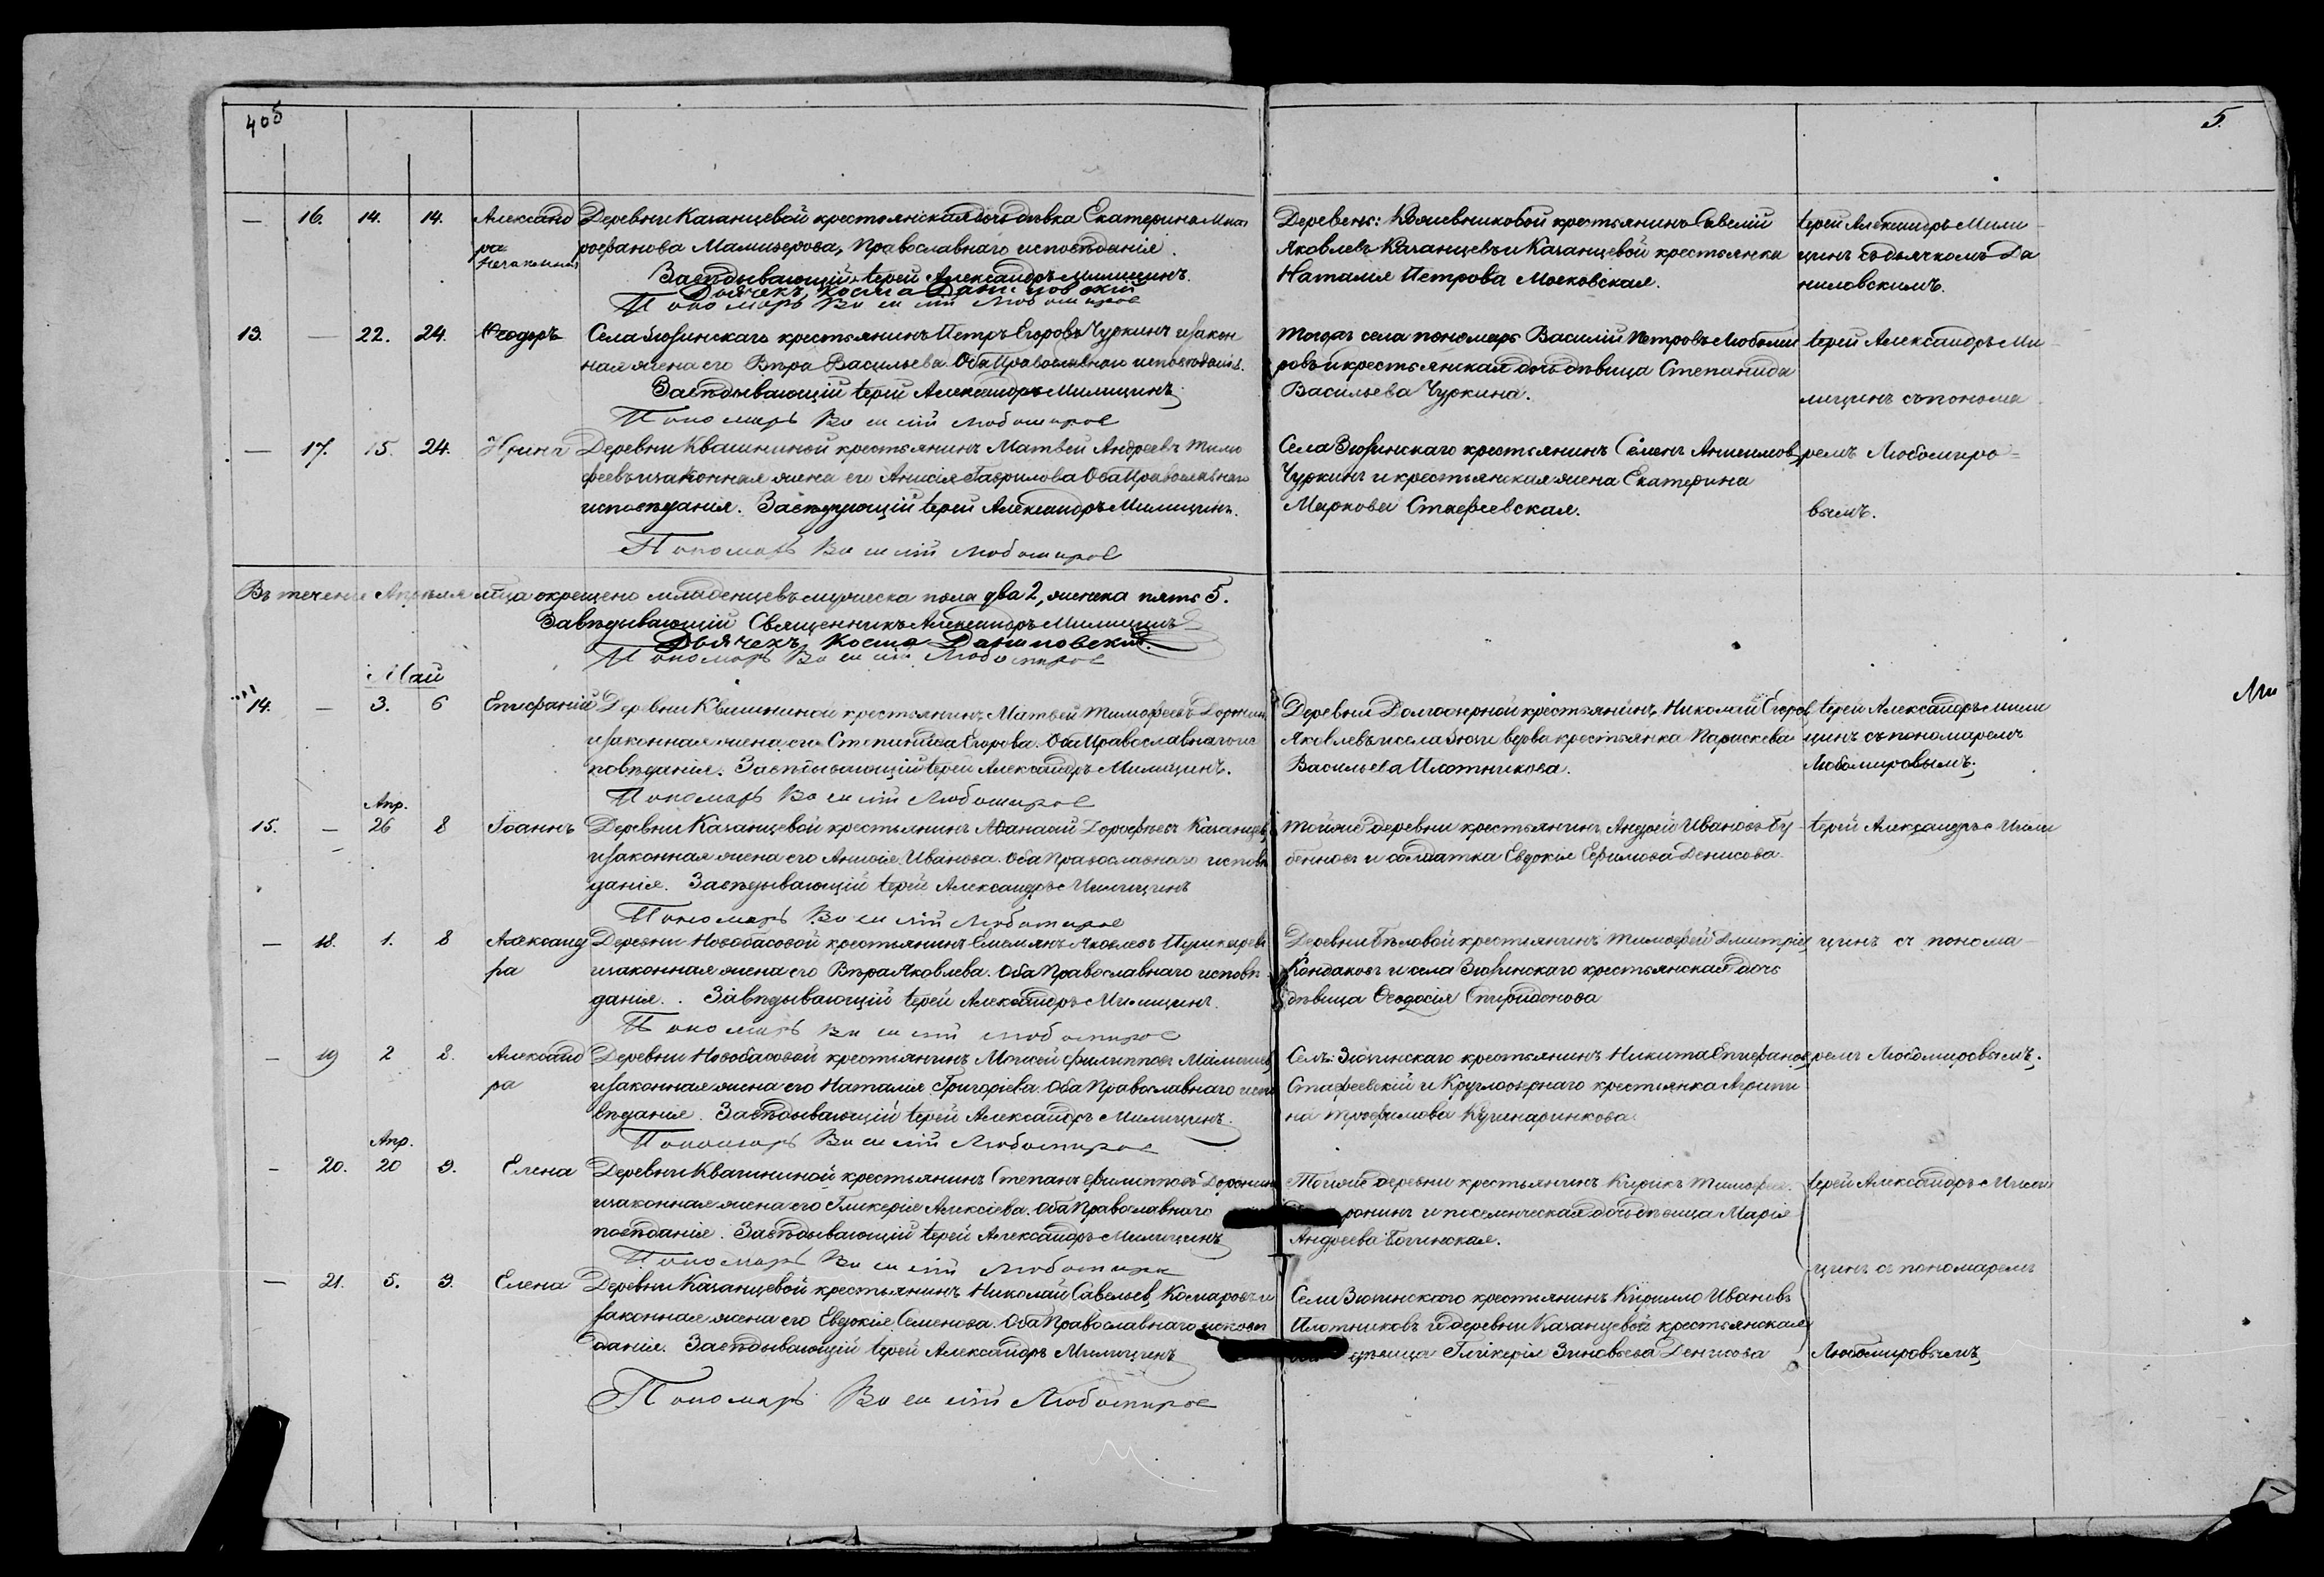 405
5.
— 16. 14. 14. Александ Деревни Казанцевой крестьянская дочь дѣвка Екатерина Мит
ра рофанова Мамизерова, Православнаго исповѣданія.
Незаконная
Завѣдывающій Іерей Александръ Милицинъ.
Дьячекъ Косма Даниловскій
Пономарь Василій Любомиров
Деревень: Квашниковой крестьянинъ Савелій
Яковлевъ Казанцевъ и Казанцевой крестьянка
Наталія Петрова Московская.
Іерей Александръ Мили
цинъ съ дьячкомъ Да
ниловскимъ.
13. — 22. 24. Ѳеодоръ Села Зюзинскаго крестьянинъ Петръ Егоровъ Чуркинъ и закон
ная жена его Вѣра Васильева. Оба Православнаго исповѣданія.
Завѣдывающій Іерей Александръ Милицинъ
Пономарь Василій Любомиров
Тогожъ села пономарь Василій Петровъ Любоми
ровъ и крестьянская дочь дѣвица Степанида
Васильева Чуркина.
Іерей Александръ Ми
лицинъ съ понома
— 17. 15. 24. Ирина Деревни Квашниной крестьянинъ Матвей Андреевъ Тимо
феевъ и законная жена его Анисія Гаврилова Оба Православнаго
исповѣданія. Завѣдующій Іерей Александръ Милицинъ.
Пономарь Василій Любомиров
Села Зюзинскаго крестьянинъ Семенъ Анисимов
Чуркинъ и крестьянская жена Екатерина
Маркова Стафеевская.
ремъ Любомиро=
вымъ.
Въ теченіе Апрѣля м͠ца окрещено младенцевъ мужеска пола два 2, женска пять 5.
Завѣдывающій Священникъ Александръ Милицинъ
Дьячекъ Косма Даниловскій
Пономарь Василій Любомиров
Май
14. — 3. 6 Епифаній Деревни Квашниной крестьянинъ Матвей Тимофеевъ Доронин
и законная жена его Степанида Егорова. Оба Православнаго ис
повѣданія. Завѣдывающій Іерей Александръ Милицинъ.
Пономарь Василій Любомиров
Деревни Долгоозерной крестьянинъ Николай Егоров
Яковлевъ и села Зюзи вдова крестьянка Параскева
Васильева Плотникова.
Іерей Александръ Мили
цинъ съ пономаремъ
Любомировымъ.
Ми
Апр.
15. — 26 8 Іоаннъ Деревни Казанцевой крестьянинъ Аѳанасій Дорофѣевъ Казанцевъ
и законная жена его Анисія Иванова. Оба Православнаго исповѣ
данія. Завѣдывающій Іерей Александръ Милицинъ
Пономарь Василій Любомиров
Тойже деревни крестьянинъ Андрей Ивановъ Бу
бенновъ и солдатка Евдокія Ефимова Денисова.
Іерей Александръ Мили
— 18. 1. 8 Александ Деревни Новобасовой крестьянинъ Емельянъ Яковлевъ Пушкарев
ра и законная жена его Вѣра Яковлева. Оба Православнаго исповѣ
данія. Завѣдывающій Іерей Александръ Милицинъ.
Пономарь Василій Любомиров
Деревни Бѣловой крестьянинъ Тимофей Дмитріев
Кондаковъ и села Зюзинскаго крестьянская дочь
дѣвица Ѳеодосія Спиридонова
цинъ съ понома
— 19 2 8. Александ Деревни Новобасовой крестьянинъ Моисей Филипповъ
ра и законная жена его Наталія Григорьева. Оба Православнаго испо
вѣданія. Завѣдывающій Іерей Александръ Милицинъ.
Пономарь Василій Любомиров
Селъ: Зюзинскаго крестьянинъ Никита Епифанов
Стафеевскій и Круглоозернаго крестьянка Агрипи
на Трофимова
ремъ Любомировымъ.
Апр.
— 20. 20 9. Елена Деревни Квашниной крестьянинъ Степанъ Филипповъ Доронин
и законная жена его Гликерія Алексіева. Оба Православнаго
повѣданія. Завѣдывающій Іерей Александръ Милицинъ
Пономарь Василій Любомиров
Тойже деревни крестьянинъ Кирикъ Тимофеев
ронинъ и поселенческая дочь дѣвица Марія
Андреева
Іерей Александръ Мили
цинъ съ пономаремъ
— 21. 5. 9. Елена Деревни Казанцевой крестьянинъ Николай Савельев Комаровъ и
законная жена его Евдокія Семенова. Оба Православнаго исповѣ
данія. Завѣдывающій Іерей Александръ Милицинъ
Пономарь Василій Любомиров
Села Зюзинскаго крестьянинъ Кирилло Ивановъ
Плотниковъ и деревни Казанцевой крестьянская
дѣвица Гликерія Зиновьева Денисова
Любомировымъ